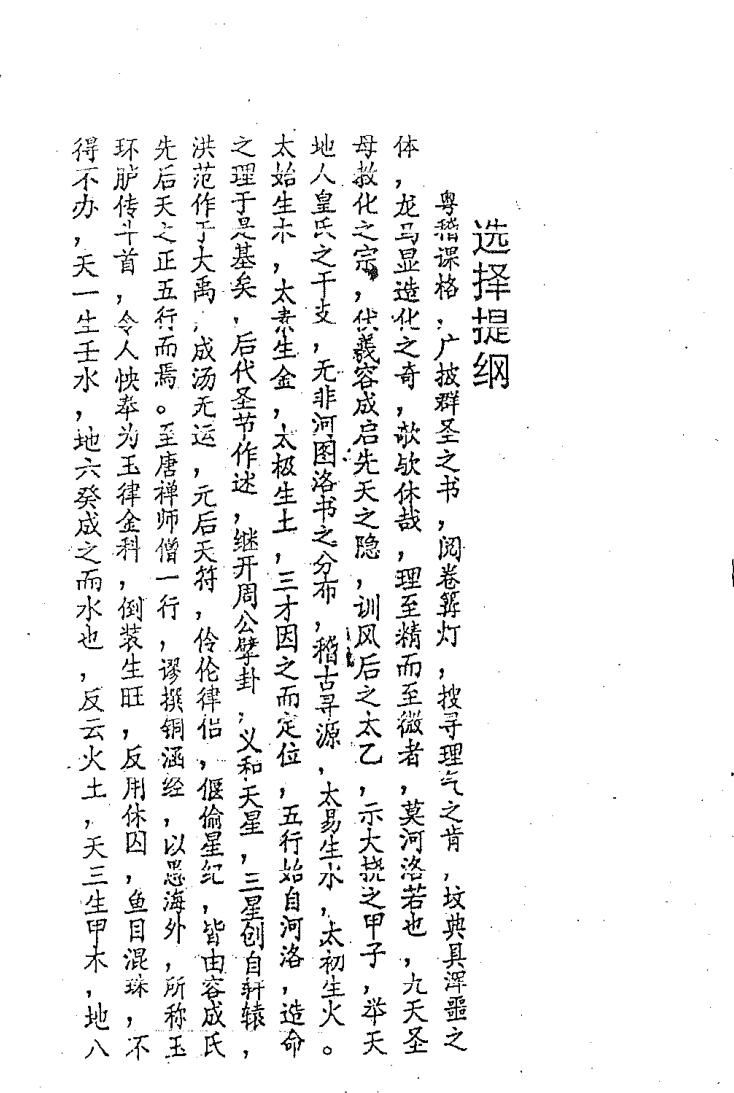 选择提纲
粤稽课格，广披群圣之书，阅卷篝灯，搜寻理气之肯，坟典具浑噩之
体，龙马显造化之奇，欹欤休哉，理至精而至微者，莫河洛若也，九天圣
母教化之宗，伏羲容成启先天之隐，训风后之太乙，示大挠之甲子，举天
地人皇氏之干支，无非河图洛书之分布，稽古寻源，太易生水，太初生火。
太始生木，太素生金，太极生土，三才因之而定位，五行始自河洛，造命
之理于是基矣，后代圣节作述，继开周公擘卦，义和天星，三星创自轩辕，
洪范作于大禹，成汤无运，元后天符，伶伦律侣，偃偷星纪，皆由容成氏
先后天之正五行而焉。至唐禅师僧一行，谬撰铜涵经，以愚海外，所称玉
环胪传斗首，令人怏奉为玉律金科，倒装生旺，反用休囚，鱼目混珠，不
得不办，天一生壬水，地六癸成之而水也，反云火土，天三生甲木，地八